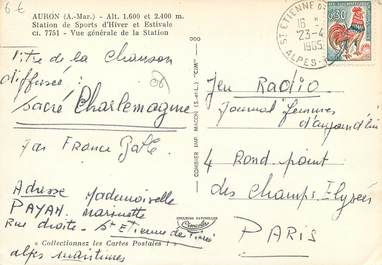 6 €
AURON (A.-Mar.) - Alt. 1.600 et 2.400 m.
Station de Sports d'Hiver et Estivale
ci. 7751 - Vue générale de la Station
titre de la Chanson
diffusée :
Sacré Charlemagne
par France Gall
Adresse Mademoiselle
PAYAN Marinette
Rue droite - St Etienne de Tinée
« Collectionnez les Cartes Postales »
alpes maritimes
COMBIER IMP. MACON (S.-&-L.) "CIM"
Combier
ST ETIENNE
16 H
23-4
1965
ALPES-
0,30
Jeu Radio
Journal femmes
d'aujourd'hui
4 Rond-point
des Champs Elysées
PARIS